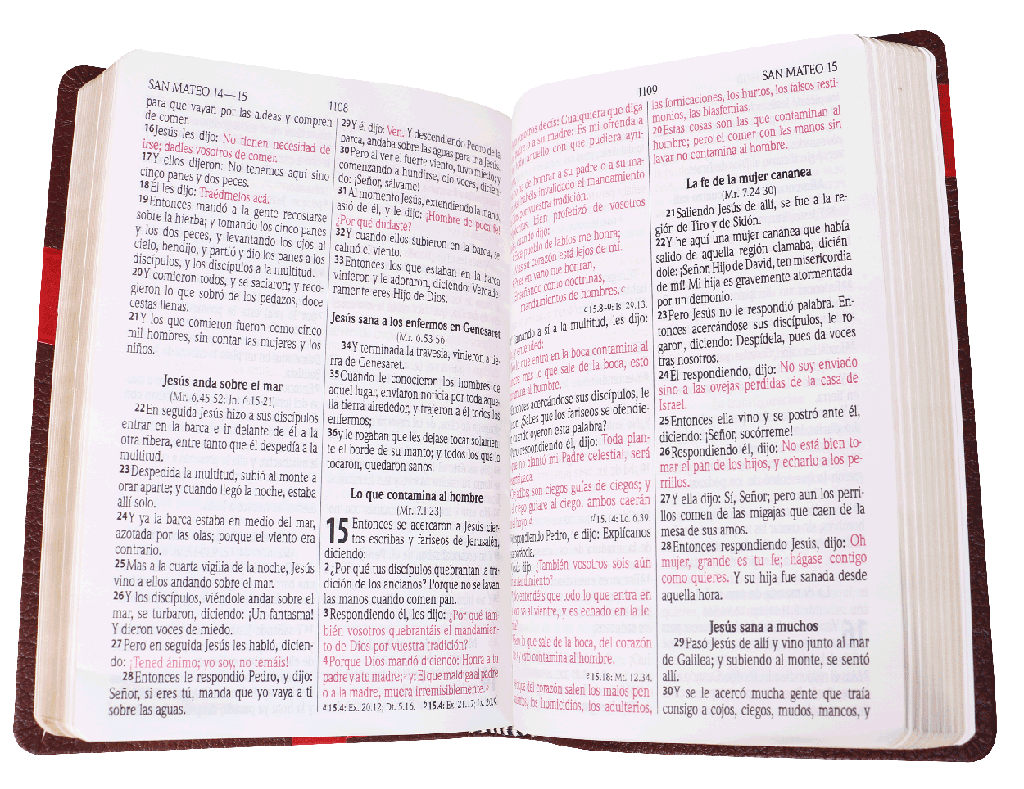 SAN MATEO 14—15
1108
para que vayan por las aldeas y compren
de comer.
16Jesús les dijo: No tienen necesidad de
irse; dadles vosotros de comer.
17Y ellos dijeron: No tenemos aquí sino
cinco panes y dos peces.
18Él les dijo: Traédmelos acá.
19Entonces mandó a la gente recostarse
sobre la hierba; y tomando los cinco panes
y los dos peces, y levantando los ojos al
cielo, bendijo, y partió y dio los panes a los
discípulos, y los discípulos a la multitud.
20Y comieron todos, y se saciaron; y reco-
gieron lo que sobró de los pedazos, doce
cestas llenas.
21Y los que comieron fueron como cinco
mil hombres, sin contar las mujeres y los
niños.
Jesús anda sobre el mar
(Mr. 6.45-52; Jn. 6.15-21)
22En seguida Jesús hizo a sus discípulos
entrar en la barca e ir delante de él a la
otra ribera, entre tanto que él despedía a la
multitud.
23Despedida la multitud, subió al monte a
orar aparte; y cuando llegó la noche, estaba
allí solo.
24Y ya la barca estaba en medio del mar,
azotada por las olas; porque el viento era
contrario.
25Mas a la cuarta vigilia de la noche, Jesús
vino a ellos andando sobre el mar.
26Y los discípulos, viéndole andar sobre el
mar, se turbaron, diciendo: ¡Un fantasma!
Y dieron voces de miedo.
27Pero en seguida Jesús les habló, dicien-
do: ¡Tened ánimo; yo soy, no temáis!
28Entonces le respondió Pedro, y dijo:
Señor, si eres tú, manda que yo vaya a ti
sobre las aguas.
29Y él dijo: Ven. Y descendiendo Pedro de la
barca, andaba sobre las aguas para ir a Jesús.
30Pero al ver el fuerte viento, tuvo miedo; y
comenzando a hundirse, dio voces, dicien-
do: ¡Señor, sálvame!
31Al momento Jesús, extendiendo la mano,
asió de él, y le dijo: ¡Hombre de poca fe!
¿Por qué dudaste?
32Y cuando ellos subieron en la barca, se
calmó el viento.
33Entonces los que estaban en la barca
vinieron y le adoraron, diciendo: Verdade-
ramente eres Hijo de Dios.
Jesús sana a los enfermos en Genesaret
(Mr. 6.53-56)
34Y terminada la travesía, vinieron a tie-
rra de Genesaret.
35Cuando le conocieron los hombres de
aquel lugar, enviaron noticia por toda aque-
lla tierra alrededor, y trajeron a él todos los
enfermos;
36y le rogaban que les dejase tocar solamen-
te el borde de su manto; y todos los que lo
tocaron, quedaron sanos.
Lo que contamina al hombre
(Mr. 7.1-23)
15 Entonces se acercaron a Jesús cier-
tos escribas y fariseos de Jerusalén,
diciendo:
2¿Por qué tus discípulos quebrantan la tra-
dición de los ancianos? Porque no se lavan
las manos cuando comen pan.
3Respondiendo él, les dijo: ¿Por qué tam-
bién vosotros quebrantáis el mandamien-
to de Dios por vuestra tradición?
4Porque Dios mandó diciendo: Honra a tu
padre y a tu madre; y: El que maldiga al padre
o a la madre, muera irremisiblemente.
15.4: Ex. 20.12; Dt. 5.16. 15.4: Ex. 21.17;
1109
SAN MATEO 15
decís: Cualquiera que diga
a su madre: Es mi ofrenda a
aquello con que pudiera ayu-
de honrar a su padre o a su ma-
habéis invalidado el mandamiento
por vuestra tradición.
bien profetizó de vosotros
cuando dijo:
pueblo de labios me honra;
su corazón está lejos de mí.
en vano me honran,
como doctrinas,
mandamientos de hombres.
15.8-9: Is. 29.13.
a sí a la multitud, les dijo:
entended:
que entra en la boca contamina al
mas lo que sale de la boca, esto
al hombre.
acercándose sus discípulos, le
¿Sabes que los fariseos se ofendie-
cuando oyeron esta palabra?
respondiendo él, dijo: Toda plan-
que no plantó mi Padre celestial, será
son ciegos guías de ciegos; y
ciego guiare al ciego, ambos caerán
hoyo.
15.14: Lc. 6.39.
Pedro, le dijo: Explícanos
parábola.
dijo: ¿También vosotros sois aún
entendimiento?
entendéis que todo lo que entra en
va al vientre, y es echado en la le-
lo que sale de la boca, del corazón
contamina al hombre.
15.18: Mt. 12.34.
del corazón salen los malos pen-
los homicidios, los adulterios,
las fornicaciones, los hurtos, los falsos testi-
monios, las blasfemias.
20Estas cosas son las que contaminan al
hombre; pero el comer con las manos sin
lavar no contamina al hombre.
La fe de la mujer cananea
(Mr. 7.24-30)
21Saliendo Jesús de allí, se fue a la re-
gión de Tiro y de Sidón.
22Y he aquí una mujer cananea que había
salido de aquella región clamaba, dicién-
dole: ¡Señor, Hijo de David, ten misericordia
de mí! Mi hija es gravemente atormentada
por un demonio.
23Pero Jesús no le respondió palabra. En-
tonces acercándose sus discípulos, le ro-
garon, diciendo: Despídela, pues da voces
tras nosotros.
24Él respondiendo, dijo: No soy enviado
sino a las ovejas perdidas de la casa de
Israel.
25Entonces ella vino y se postró ante él,
diciendo: ¡Señor, socórreme!
26Respondiendo él, dijo: No está bien to-
mar el pan de los hijos, y echarlo a los pe-
rrillos.
27Y ella dijo: Sí, Señor; pero aun los perri-
llos comen de las migajas que caen de la
mesa de sus amos.
28Entonces respondiendo Jesús, dijo: Oh
mujer, grande es tu fe; hágase contigo
como quieres. Y su hija fue sanada desde
aquella hora.
Jesús sana a muchos
29Pasó Jesús de allí y vino junto al mar
de Galilea; y subiendo al monte, se sentó
allí.
30Y se le acercó mucha gente que traía
consigo a cojos, ciegos, mudos, mancos, y